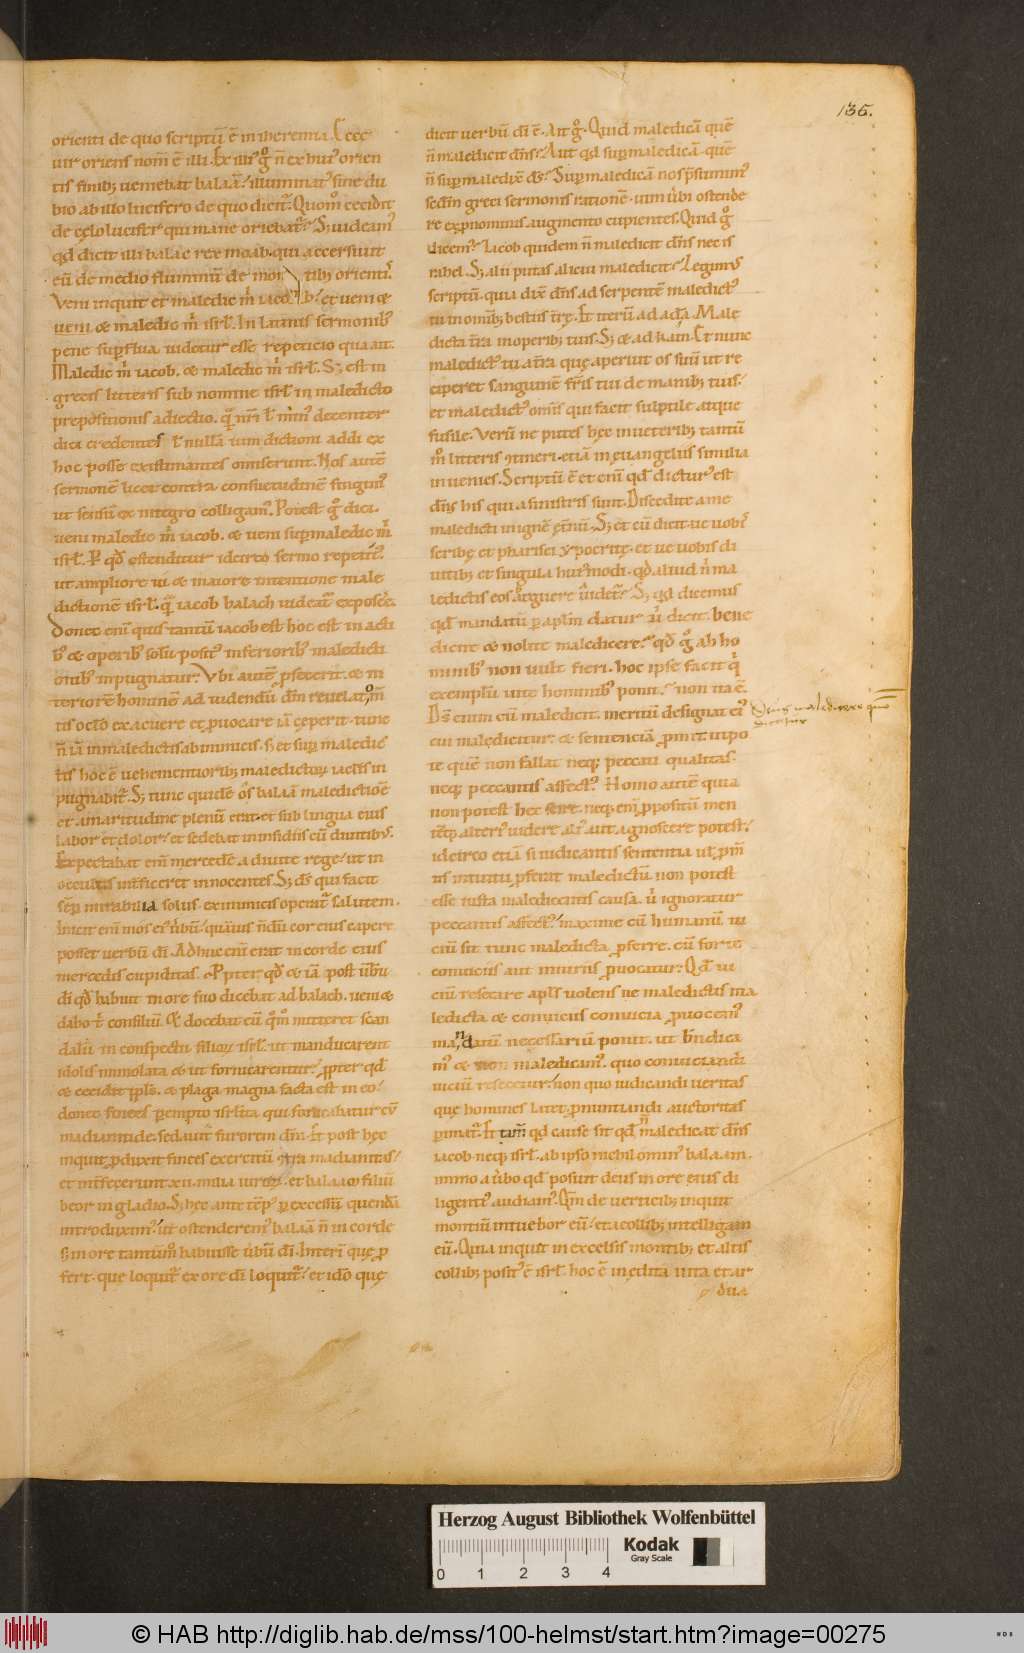 135.
orienti de quo scriptū ē in iheremia. Ecce
uir oriens nom̄ ē illi. Ex illiˀ gͦ ñ ex huiˀ orien
tis finibꝫ ueniebat balaā. illuminatˀ sine du
bio ab illo lucifero de quo dicitˀ. Quom̊ cecidit
de cęlo lucifer qui mane oriebatˀ. Sꝫ uideamˀ
qd dicit illi balac rex moab. qui accersiuit
eū de medio fluminū de montibꝫ orientˀ.
Veni inquit et maledic m̄ iacob. et ueni &
ueni & maledic m̄ isrl̄. In latinis sermonibˀ
pene supflua uidetur esse repeticio qua ait.
Maledic m̄ iacob. & maledic m̄ isrl̄. Sꝫ est in
grecis litteris sub nomine isrl̄ in maledicto
prepositionis adiectio.
dici credentes ł nullā uim dictioni addi ex
hoc posse existimantes omiserunt. Nos autē
sermonē licet contra consuetudinē fingimˀ
ut sensū ex integro colligam̄. Potest gͦ dici.
ueni maledic m̄ iacob. & ueni supmaledic m̄
isrl̄. P qd̄ ostenditur idcirco sermo repetitˀ.
ut ampliore ui & maiore intentione male
dictionē isrl̄. qā iacob balach uideatˀ exposcˀe.
Donec eni quis tantū iacob est hoc est in acti
bˀ & operibˀ solū positˀ inferioribˀ maledicti
onibˀ inpugnatur. Vbi autē pfecerit. & in
teriorē hominē ad uidendū dm̄ reuelatis m̄
tis oclo exacuere et puocare iā cęperit. tunc
ñ iā in maledictis ab inimicis. sꝫ et sup maledic
tis hoc ē uehementioribꝫ maledictoꝝ iaclis in
pugnabitˀ. Sꝫ tunc quidē os balaā maledictiōe
et amaritudine plenū erat. et sub lingua eius
labor et dolor. et sedebat in insidiis cū diuitibˀ.
Expectabat eni mercedē a diuite rege. ut in
occultis intˀficeret innocentes. Sꝫ ds̄ qui facit
sēp mirabilia solus. ex inimicis operatˀ salutem.
posset uerbū di. Adhuc eni erat in corde eius
mercedis cupiditas. Ppter qd̄ & iā post ūbū
di qd̄ habuit in ore suo dicebat ad balach. ueni &
dabo t̄ consiliū. & docebat eū qm̊ mitteret scan
dalū in conspectu filioꝝ isrl̄. ut manducarent
idolis immolata & ut fornicarentur. ppter qd̄
& cecidit ipls̄. & plaga magna facta est in eo.
donec finees pempto isrlita qui fornicabatur cū
madianitide. sedauit furorem dni. Et post hęc
inquit pduxit finees exercitū ꝯtra madianitas.
et intˀfecerunt xii. milia uiroꝝ. et balaam filiū
beor in gladio. Sꝫ hęc ante tēpˀ p excessū quendā
introduximˀ. ut ostenderemˀ balaā ñ in corde
sꝫ in ore tantūm̊ habuisse ūbū di. Interī quę p
fert. que loquitˀ ex ore di loquitˀ. et ideo quę
dicit uerbū di ē. Ait gͦ. Quid maledicā quē
ñ maledicit dns̄. Aut qd supmaledicā. quē
ñ supmaledixē ds̄. Supmaledicā nos psumimˀ
scdm̄ greci sermonis rationē. uim ūbi ostende
re ex pnominis augmento cupientes. Quid gͦ
dicemˀ. Iacob quidem ñ maledicit dns̄ nec is
rahel. Sꝫ alii putas alicui maledicit. Legimˀ
scriptū. quia dixē dns̄ ad serpentē maledictˀ
tu in omībꝫ bestiis t̄rę. Et iterū ad adā. Male
dicta t̄ra in operibꝫ tuis. Sꝫ & ad kain. Et nunc
maledictˀ tu a t̄ra quę aperuit os suū ut re
ciperet sanguinē fr̄is tui de manibꝫ tuis.
et maledictˀ omīs qui facit sulptile atque
fusile. Verū ne putes hęc in ueteribꝫ tantū
m̊ litteris ꝯtineri. etiā in euangeliis similia
inuenies. Scriptū ē et eni qd̄ dicturˀ est
dns̄ his qui a sinistris sunt. Discedite a me
maledicti in ignē ęt̄nū. Sꝫ et cū dicit. ue uobˀ
scribę et pharisei ypocritę. et ue uobis di
uitibꝫ et singula huiˀmodi. qd̄ aliud ñ ma
ledictis eos arguere uidetˀ. Sꝫ qd dicemus
qd̄ mandatū p aplm̄ datur ubi dicit. bene
dicite & nolite maledicere. qd̄ gͦ ab ho
minibˀ non uult fieri. hoc ipse facit qi
exemplū uite hominibˀ ponit. non ita ē.
Ds̄ enim cū maledicit. meritū designat eiˀ
cui maledicitur. & sentenciā pmit utpo
te quē non fallat neqꝫ peccati qualitas.
neqꝫ peccantis affectˀ. Homo autē quia
non potest hec scire. neqꝫ eni ppositū men
teqꝫ alteriˀ uidere aliˀ aut agnoscere potest.
idcirco etiā si iudicantis sententia
tis intuitu pferat maledictū non potest
esse iusta maledicentis causa. ubi ignoratur
peccantis affectˀ. maxime cū humanū ui
ciū sit tunc maledicta pferre. cū forte
conuiciis aut iniuriis puocatur. Qd̄ ui
ciū resecare apls̄ uolens ne maledictis ma
ledicta & conuiciis conuicia puocemˀ
mandatū necessariū ponit. ut b̄ndica
mˀ & non maledicamˀ. quo conuiciandi
uiciū resecetur. non quo iudicandi ueritas
quę homines latet pnuntiandi auctoritas
pimatˀ. Et tam̄ qd cause sit qd̄ ñ maledicat dns̄
iacob neqꝫ isrl̄. ab ipso nichil ominˀ balaam.
immo a ūbo qd̄ posuit deus in ore eius di
ligentˀ audiamˀ. Qm̄ de uerticibꝫ inquit
montiū intuebor eū. et a collibꝫ intelligam
eū. Quia inquit in excelsis montibꝫ et altis
collibꝫ positˀ ē isrl̄. hoc ē in ędita uita et ar
dua
Herzog August Bibliothek Wolfenbüttel
Kodak
Gray Scale
0 1 2 3 4
© HAB http://diglib.hab.de/mss/100-helmst/start.htm?image=00275